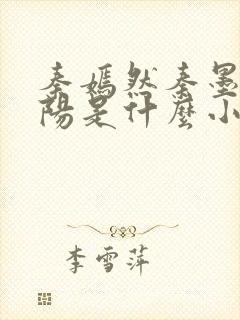 秦嫣然秦墨
陽是什麼小
李雪萍